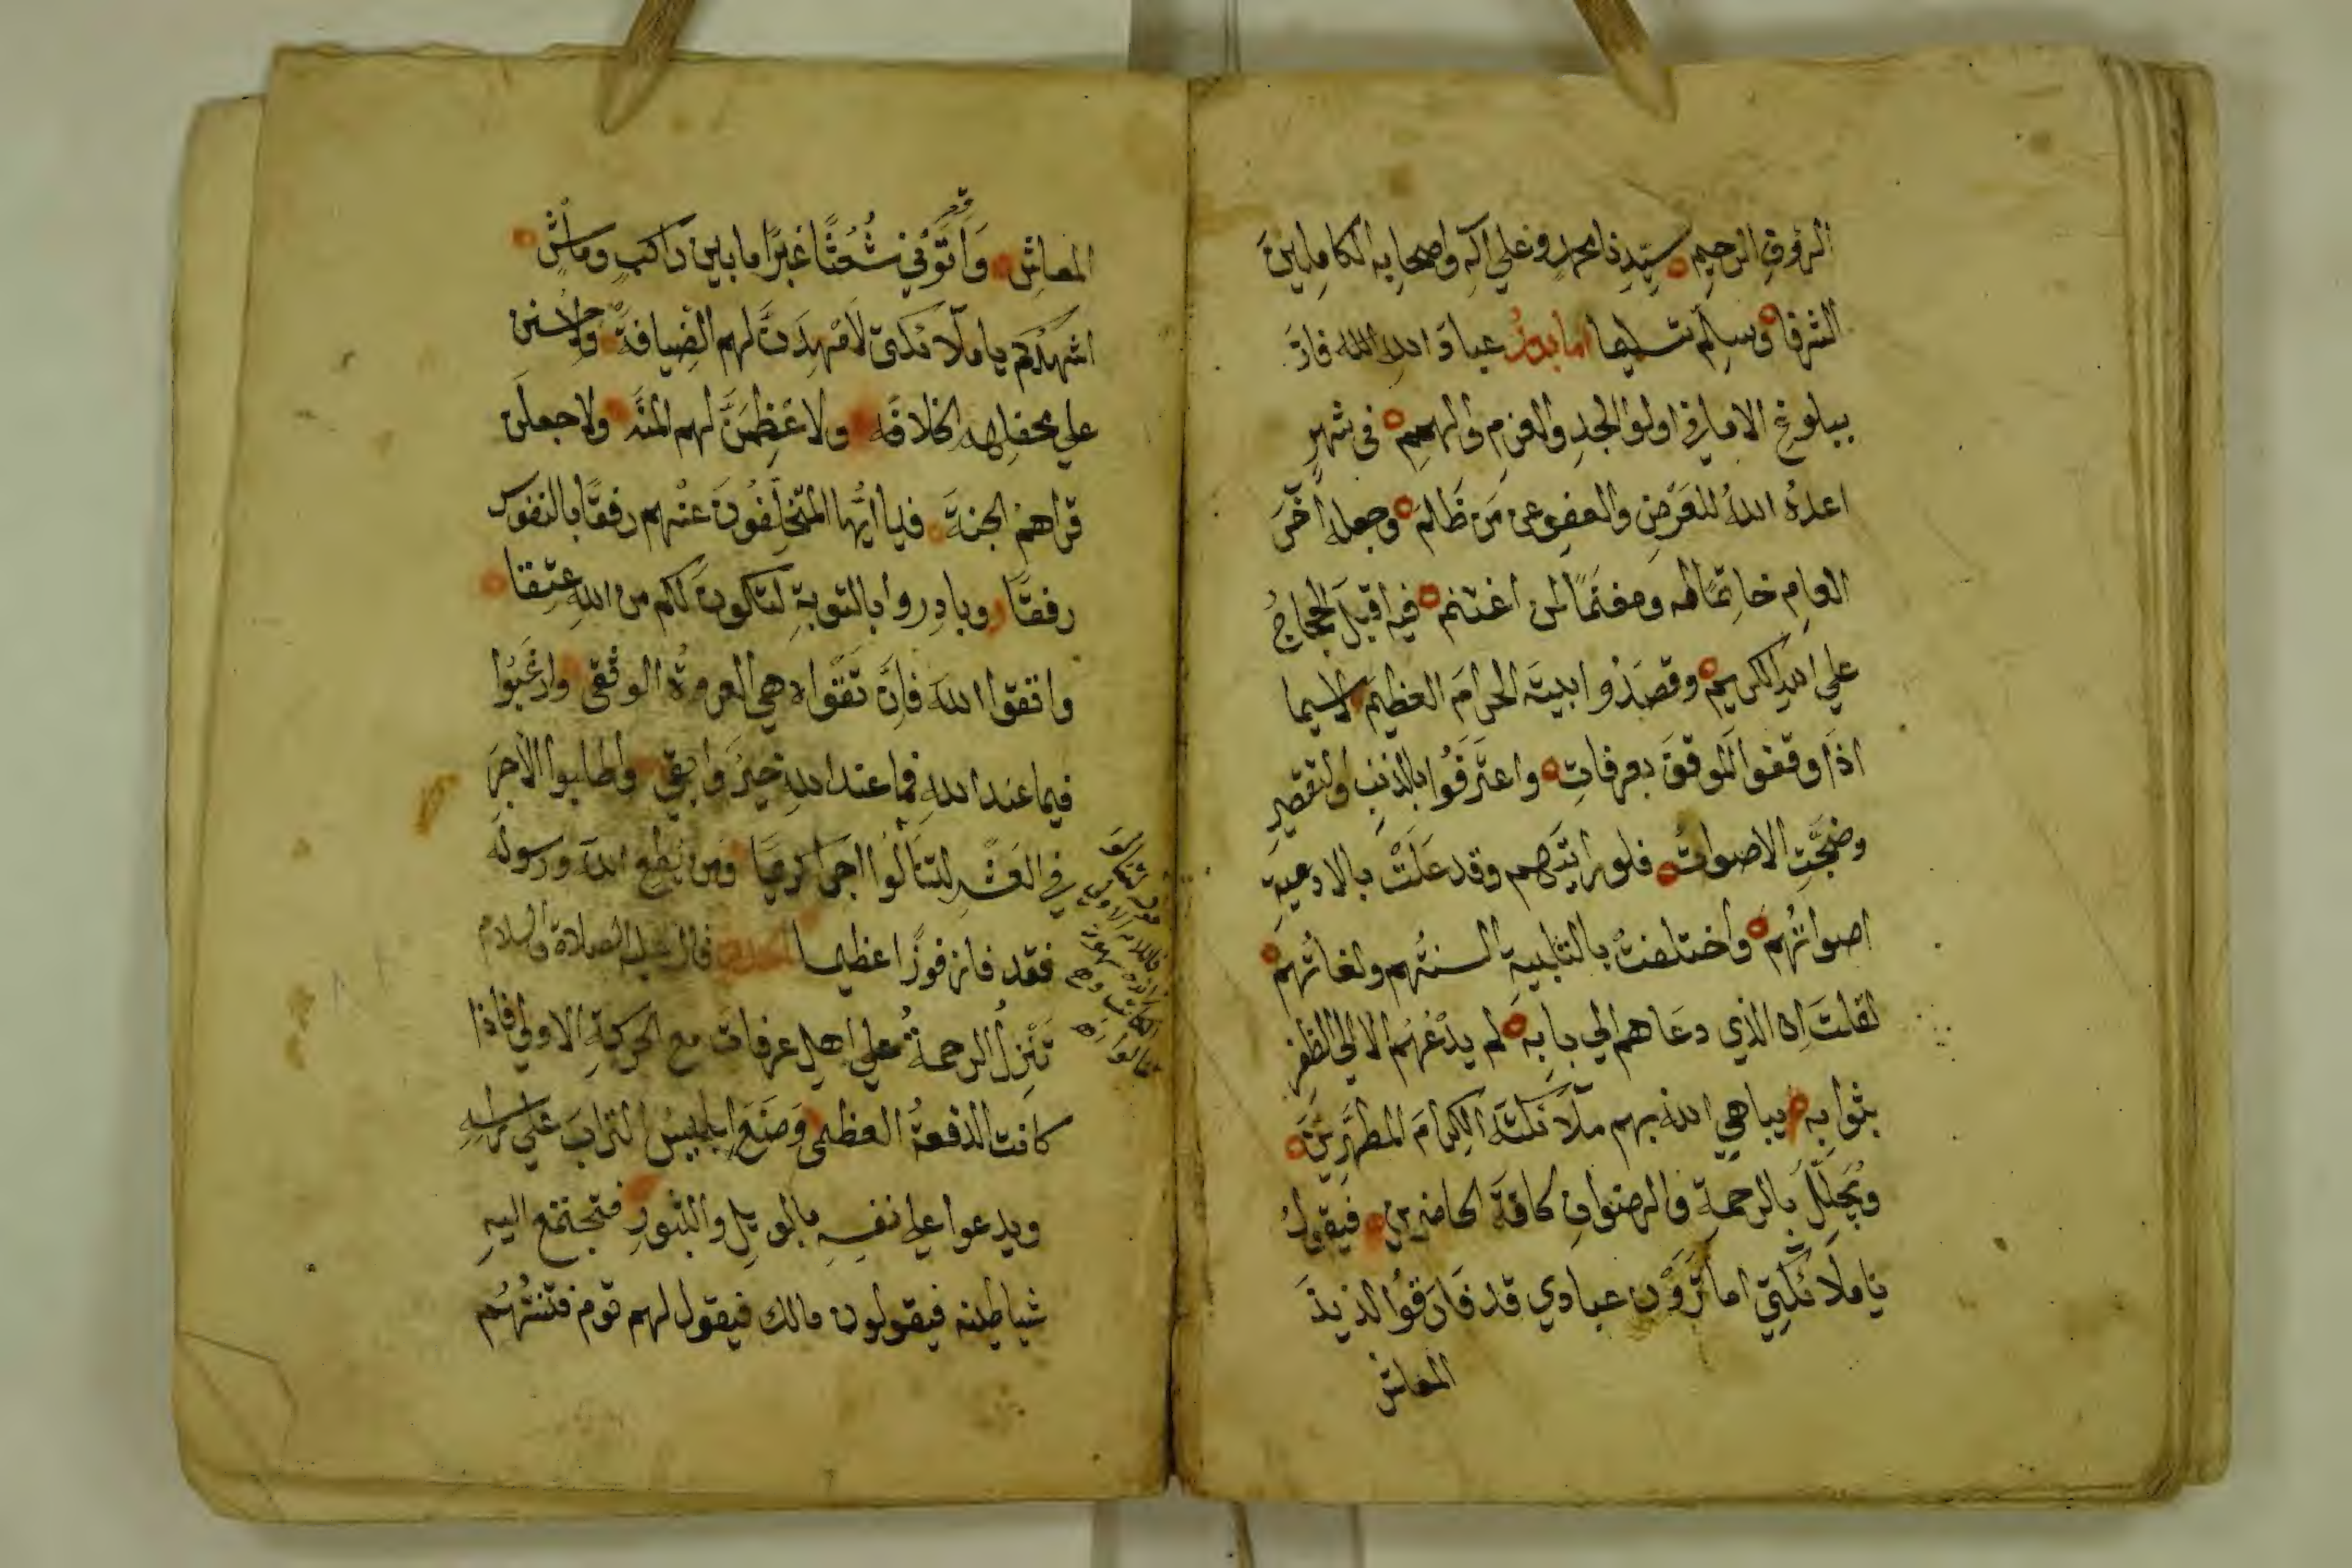 الرؤوفِ الرحيمِ سيّدِنا محمدٍ وعلي آلِه واصحابِه الكاملينَ
الشرفا وسلم تسليما اما بعدُ عبادَ اللهِ الله فازَ
ببلوغِ الامانِي اولوا الجدِ والعزمِ والهممِ في شهرٍ
اعدهُ اللهُ للتعرّضِ والعفوِ عن مَن ظَالمَ وجعلهُ آخرَ
العامِ خاتمًا له ومغنمًا لمن اغتنم فيه اقبلَ الحجاجُ
علي اللهِ الكريمِ وقصدُوا بيتَه الحرامَ العظيمَ لاسيما
اذا وقفوا الموقفَ بعرفاتٍ واعترفُوا بالذنبِ والتقصيرِ
وضجّتِ الاصواتُ فلو رايتَهم وقد علَتْ بالادعيةِ
اصواتُهم واختلفتْ بالتلبيةِ السنتُهم ولغاتُهم
لقلتَ ان الذي دعَاهم الي بابِه لم يدْعُهُم الا الي الظفرِ
بثوابِه يباهي الله بهم ملائكتَه الكرامَ المطهّرِينَ
ويُجلّلُ بالرحمةِ والرضوانِ كافةَ الحاضرين فيقولُ
يا ملائكتِي اما تَرَوْن عبادي قد فَارقُوا لذيذَ
المعاش
المعاشِ وَاَتَوْني شُعْثًا غبرًا ما بين راكبٍ وماشٍ
اشهدُكم يا ملائكتي لامْهِدَنَّ لهم الضيافةَ ولاحسنن
علي محفلِهم الخلافَه ولاعْظِمَنَّ لهم المنَّه ولاجعلَن
قراهمُ الجنةَ فيا ايُّها المتخلِّفُونَ عنْهم رفقًا بالنفوس
رفقًا وبادِروا بالتوبةِ لتكونَ لكم من اللهِ عتقا
واتقوا اللهَ فاِنَّ تقْواه هي العروةُ الوثْقي وارغبُوا
فيما عند اللهِ فما عند اللهِ خيرٌ وابقي واطلبوا الاجرَ
في العَشْرِ لتنَالُوا اجرًا كريمًا ومن يُطعِ اللهَ ورسولَه
فقد فاز فوزًا عظيما الحديث قال عليه الصلاة والسلام
تَنْزلُ الرحمةُ علي اهلِ عرفات مع الحركةِ الاولي فاذا
كانت الدفعةُ العظمي وَضَعَ ابليسُ الترابَ علي راسِهِ
ويدعوا علي نفسِه بالويلِ والثبورِ فتجتمع اليهِ
شياطينه فيقولون مالك فيقول لهم قوم فتنتُهُم